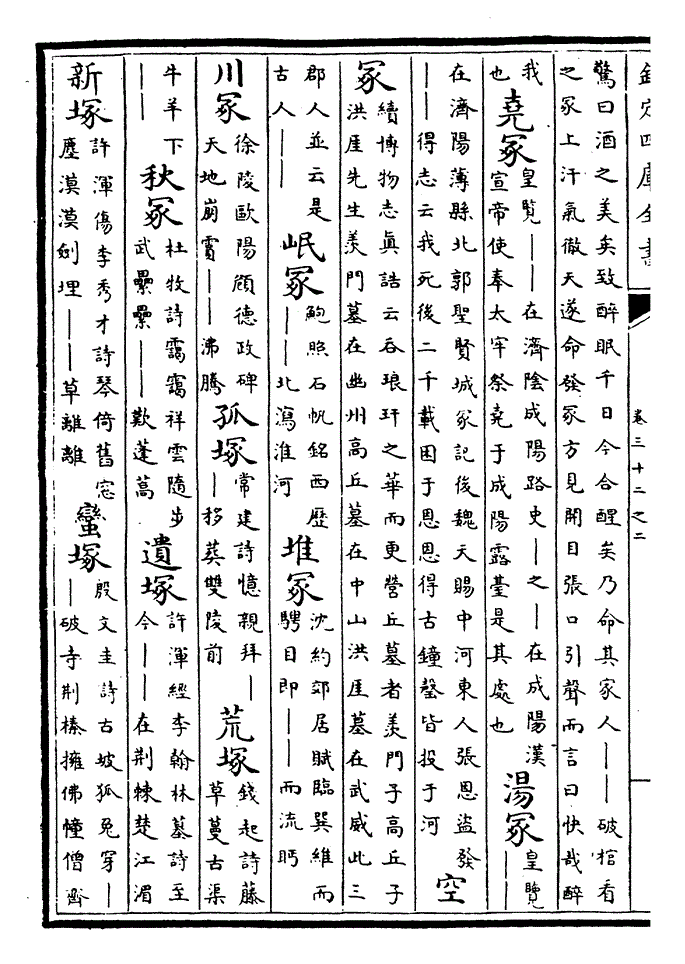 欽定四庫全書
卷三十二之二
驚曰酒之美矣致醉眠千日今合醒矣乃命其家人——破棺看
之冢上汗氣徹天遂命發冢方見開目張口引聲而言曰快哉醉
我
也
堯冢
皇覽——在濟陰成陽路史—之—在成陽漢
宣帝使奉太牢祭堯于成陽露臺是其處也
湯冢
皇覽
在濟陽薄縣北郭聖賢城冢記後魏天賜中河東人張恩盜發
——得志云我死後二千載困于恩恩得古鐘磬皆投于河
空
冢
續博物志真誥云吞琅玕之華而更營丘墓者羨門子高丘子
洪厓先生羨門墓在幽州高丘墓在中山洪厓墓在武威此三
郡人並云是
古人——
岷冢
鮑照石帆銘西歷
——北瀉淮河
堆冢
沈約郊居賦臨巽維而
騁目即——而流眄
川冢
徐陵歐陽頠德政碑
天地崩霣——沸騰
孤塚
常建詩憶親拜—
—移葬雙陵前
荒塚
錢起詩藤
草蔓古渠
牛羊下
——
秋冢
杜牧詩靄靄祥雲隨步
武纍纍——歎蓬蒿
遺塚
許渾經李翰林墓詩至
今——在荆棘楚江湄
新塚
許渾傷李秀才詩琴倚舊窓
塵漠漠劍埋——草離離
蠻塚
殷文圭詩古坡狐兔穿—
—破寺荆榛擁佛幢僧齋